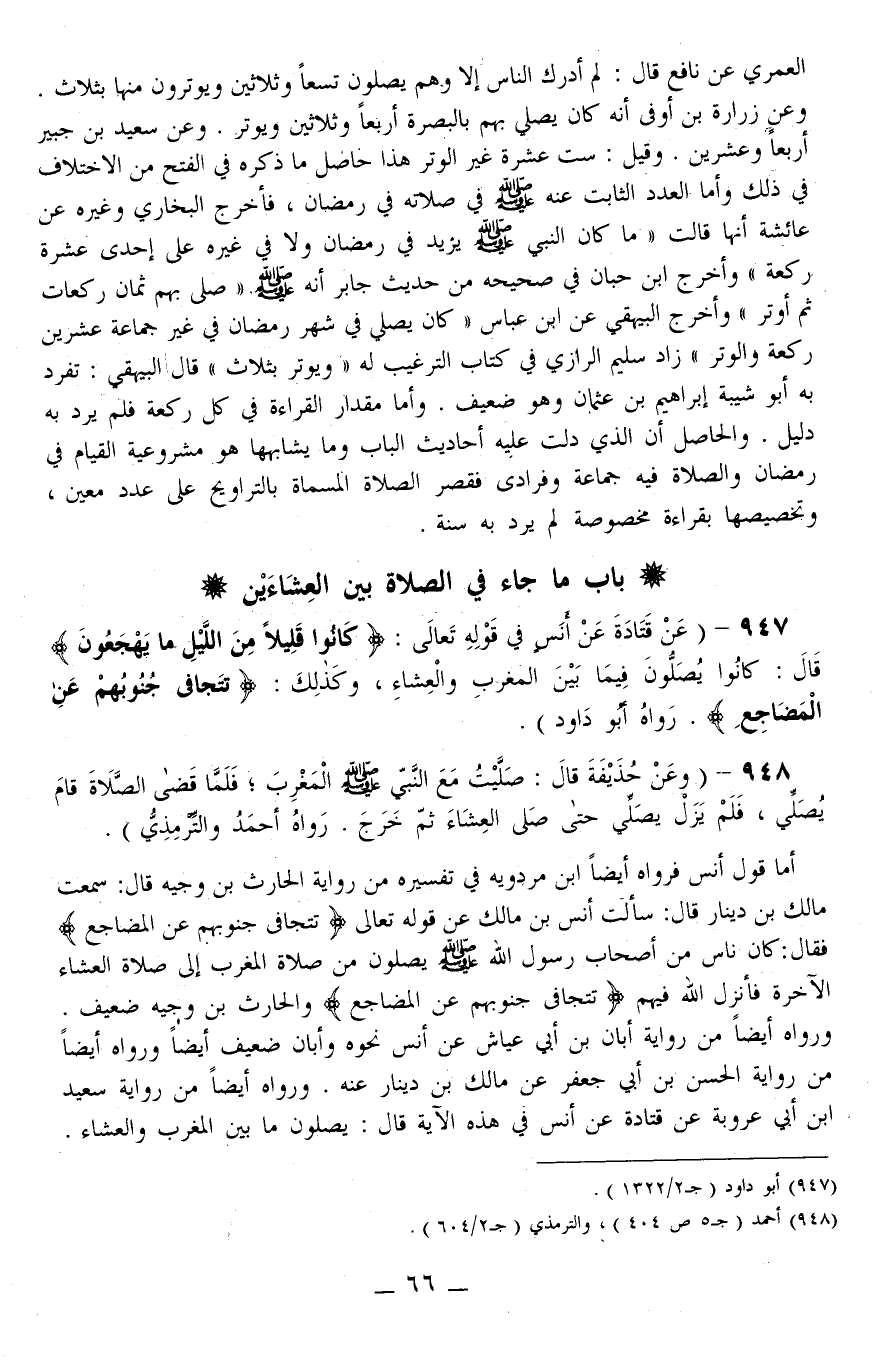 العمري عن نافع قال : لم أدرك الناس إلا وهم يصلون تسعاً وثلاثين ويوترون منها بثلاث .
وعن زرارة بن أوفى أنه كان يصلي بهم بالبصرة أربعاً وثلاثين ويوتر . وعن سعيد بن جبير
أربعاً وعشرين . وقيل : ست عشرة غير الوتر هذا حاصل ما ذكره في الفتح من الاختلاف
في ذلك وأما العدد الثابت عنه ﷺ في صلاته في رمضان ، فأخرج البخاري وغيره عن
عائشة أنها قالت « ما كان النبي ﷺ يزيد في رمضان ولا في غيره على إحدى عشرة
ركعة » وأخرج ابن حبان في صحيحه من حديث جابر أنه ﷺ « صلى بهم ثمان ركعات
ثم أوتر » وأخرج البيهقي عن ابن عباس « كان يصلي في شهر رمضان في غير جماعة عشرين
ركعة والوتر » زاد سليم الرازي في كتاب الترغيب له « ويوتر بثلاث » قال البيهقي : تفرد
به أبو شيبة إبراهيم بن عثمان وهو ضعيف . وأما مقدار القراءة في كل ركعة فلم يرد به
دليل . والحاصل أن الذي دلت عليه أحاديث الباب وما يشابهها هو مشروعية القيام في
رمضان والصلاة فيه جماعة وفرادى فقصر الصلاة المسماة بالتراويح على عدد معين ،
وتخصيصها بقراءة مخصوصة لم يرد به سنة .
✸ باب ما جاء في الصلاة بين العِشَاءَيْن ✸
٩٤٧ – ( عَنْ قَتَادَةَ عَنْ أَنَسٍ في قَوْلِهِ تَعَالَى : ﴿ كَانُوا قَلِيلاً مِنَ اللَّيْلِ ما يَهْجَعُونَ ﴾
قَالَ : كانُوا يُصَلُّونَ فِيمَا بَيْنَ المَغربِ والْعِشاءِ ، وكَذٰلِكَ : ﴿ تتَجافى جُنُوبُهمْ عَنِ
الْمَضَاجِعِ ﴾ . رَواهُ أبُو دَاود ) .
٩٤٨ – ( وعَنْ حُذَيْفَةَ قالَ : صَلَّيْتُ مَعَ النَّبيّ ﷺ الْمَغْرِبَ ؛ فَلَمَّا قَضٰى الصَّلَاةَ قامَ
يُصَلِّي ، فَلَمْ يَزَلْ يصَلِّي حتىٰ صَلى العِشَاءَ ثمّ خَرَجَ . رَواهُ أحمَدُ والتِّرْمِذِيُّ ) .
أما قول أنس فرواه أيضاً ابن مردويه في تفسيره من رواية الحارث بن وجيه قال: سمعت
مالك بن دينار قال: سألت أنس بن مالك عن قوله تعالى ﴿ تتجافى جنوبهم عن المضاجع ﴾
فقال:كان ناس من أصحاب رسول الله ﷺ يصلون من صلاة المغرب إلى صلاة العشاء
الآخرة فأنزل الله فيهم ﴿ تتجافى جنوبهم عن المضاجع ﴾ والحارث بن وجيه ضعيف .
ورواه أيضاً من رواية أبان بن أبي عياش عن أنس نحوه وأبان ضعيف أيضاً ورواه أيضاً
من رواية الحسن بن أبي جعفر عن مالك بن دينار عنه . ورواه أيضاً من رواية سعيد
ابن أبي عروبة عن قتادة عن أنس في هذه الآية قال : يصلون ما بين المغرب والعشاء .
(٩٤٧) أبو داود ( جـ٢/ ١٣٢٢ ) .
(٩٤٨) أحمد ( جـ٥ ص ٤٠٤ ) ، والترمذي ( جـ٢/ ٦٠٤ ) .
_ ٦٦ _